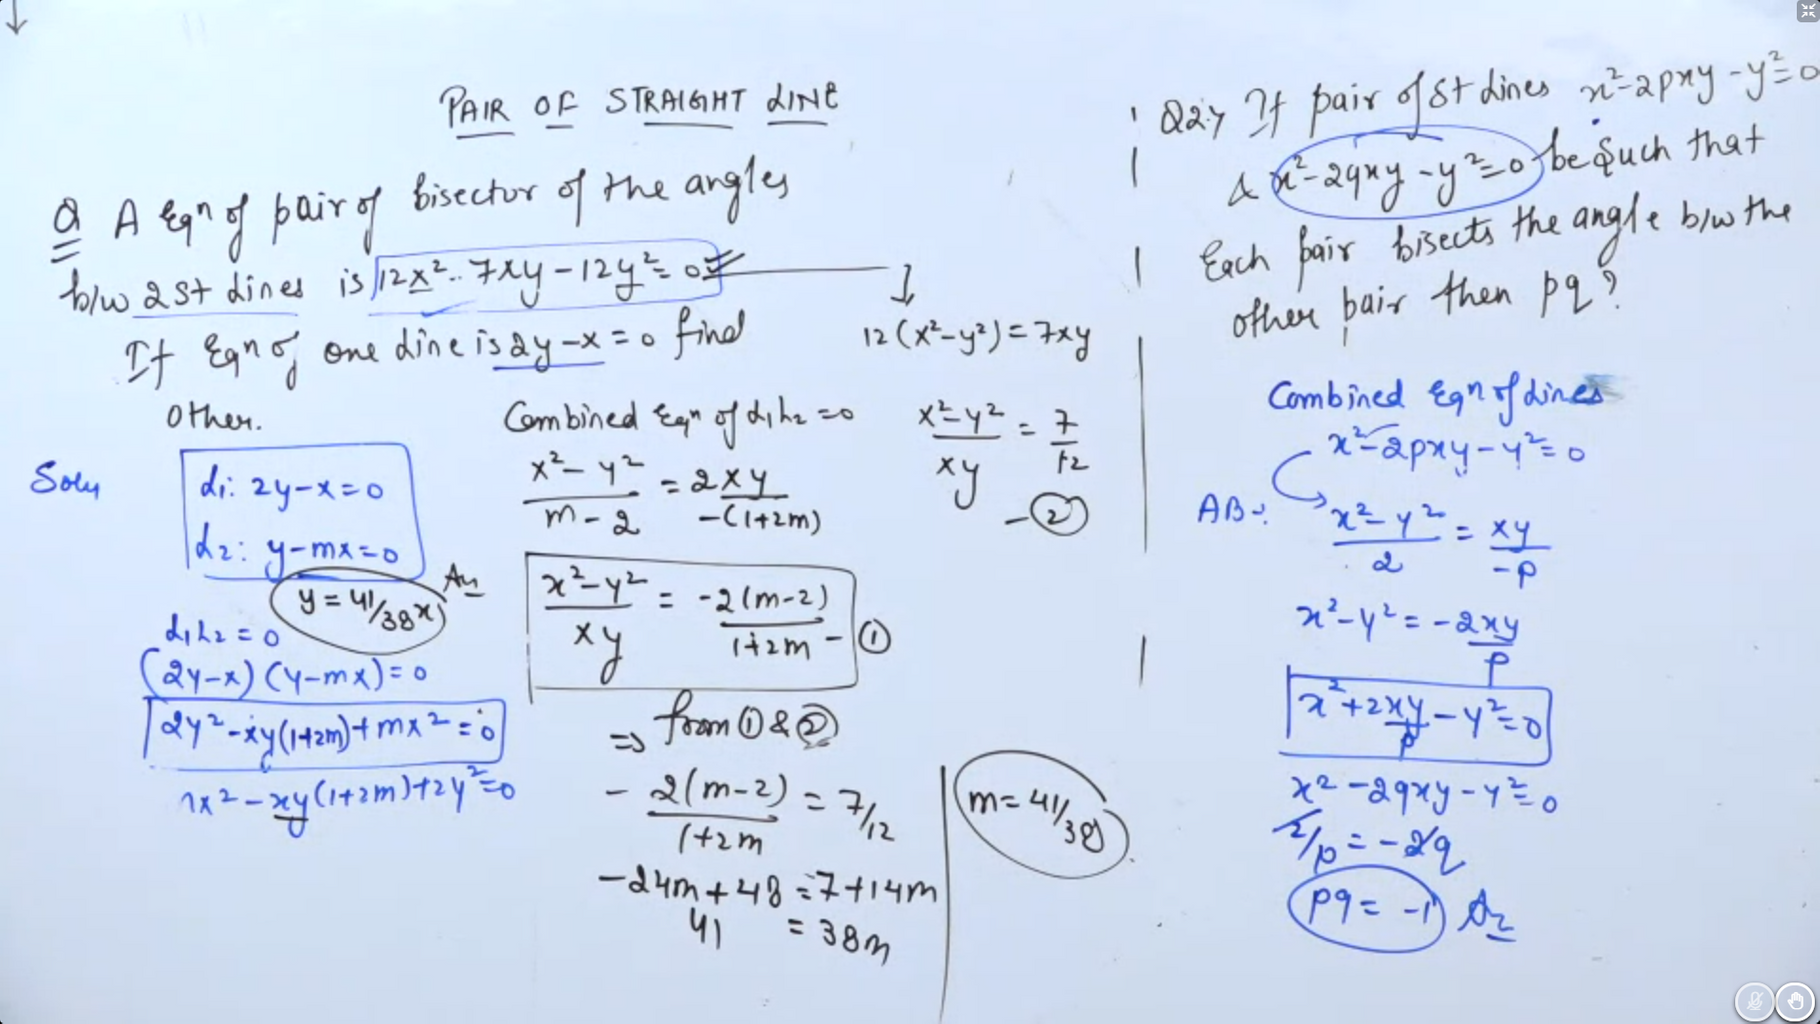 PAIR OF STRAIGHT LINE
Q A Eqn of pair of bisector of the angles
b/w 2 St Lines is 12x² - 7xy - 12y² = 0
If Eqn of one Line is 2y - x = 0 find
Other.
Soln
L₁: 2y - x = 0
L₂: y - mx = 0
y = 41/38 x An
L₁L₂ = 0
(2y - x) (y - mx) = 0
2y² - xy(1+2m) + mx² = 0
mx² - xy(1+2m) + 2y² = 0
Combined Eqn of L₁L₂ = 0
x² - y² / m - 2 = 2xy / -(1+2m)
x² - y² / xy = -2(m-2) / 1+2m - ①
⇒ from ① & ②
- 2(m-2) / 1+2m = 7/12
-24m + 48 = 7 + 14m
41 = 38m
12(x² - y²) = 7xy
x² - y² / xy = 7 / 12
- ②
m = 41/38
Q2:> If pair of St Lines x² - 2pxy - y² = 0
& x² - 2qxy - y² = 0 be Such that
Each pair bisects the angle b/w the
other pair then pq?
Combined Eqn of Lines
x² - 2pxy - y² = 0
AB:- x² - y² / 2 = xy / -p
x² - y² = -2xy / p
x² + 2xy / p - y² = 0
x² - 2qxy - y² = 0
2/p = -2q
pq = -1 An